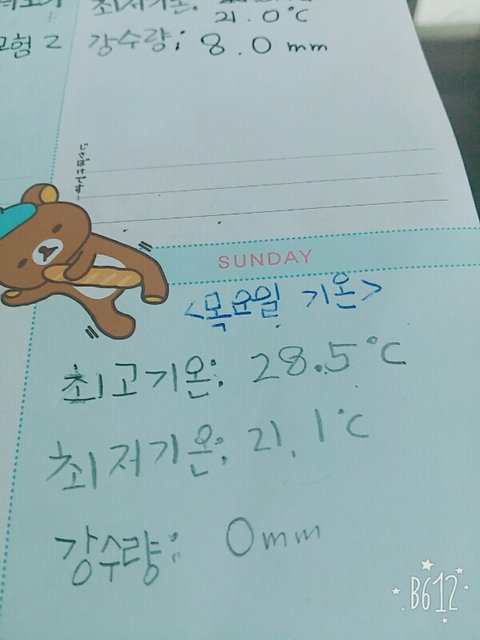 21.0°C
강수량: 8.0 mm
SUNDAY
<목요일 기온>
최고기온: 28.5°C
최저기온: 21.1°C
강수량: 0mm
B612